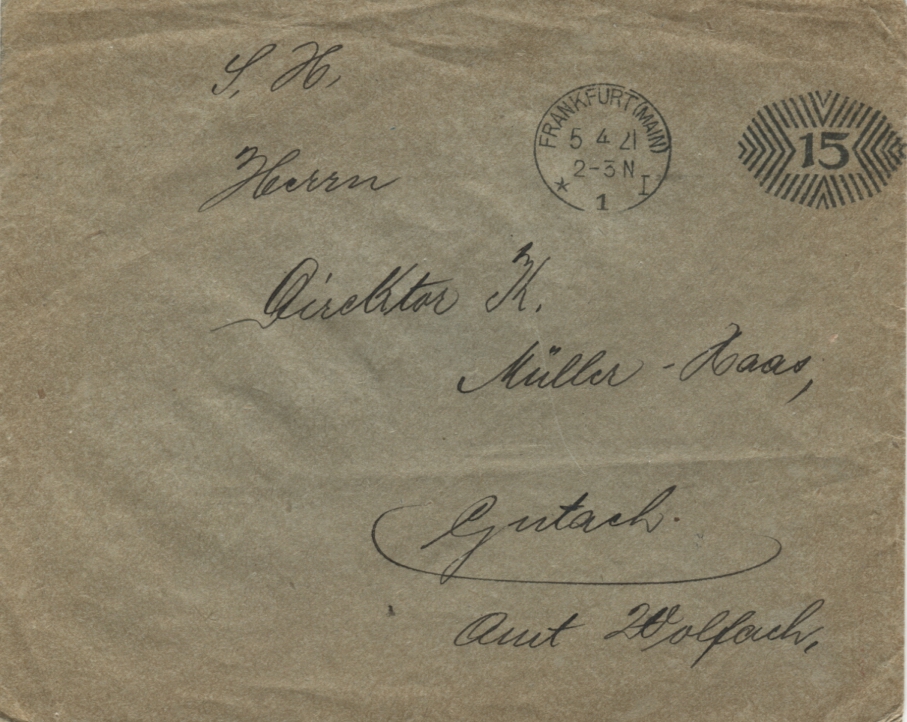 S. H.
FRANKFURT (MAIN)
5 4 21
2-3 N
* I
1
15
Herrn
Direktor K.
Müller-Haas,
Gutach.
Amt Wolfach,